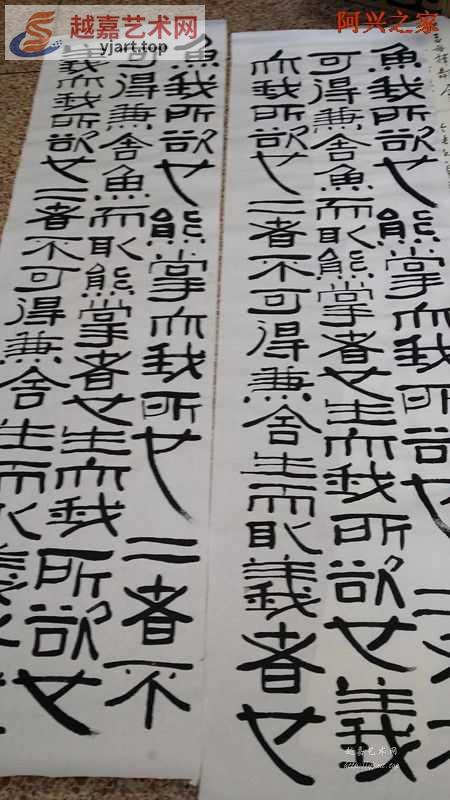 越嘉艺术网
yjart.top
阿兴之家
魚我所欲也熊掌亦我所欲也二者不
可得兼舍魚而取熊掌者也生亦我所欲也義
亦我所欲也二者不可得兼舍生而取義者也
魚我所欲也熊掌亦我所也二者不
可得兼舍魚而取熊掌者也生亦我所欲也
義亦我所欲也二者不可得兼舍生而取義
越嘉艺术网